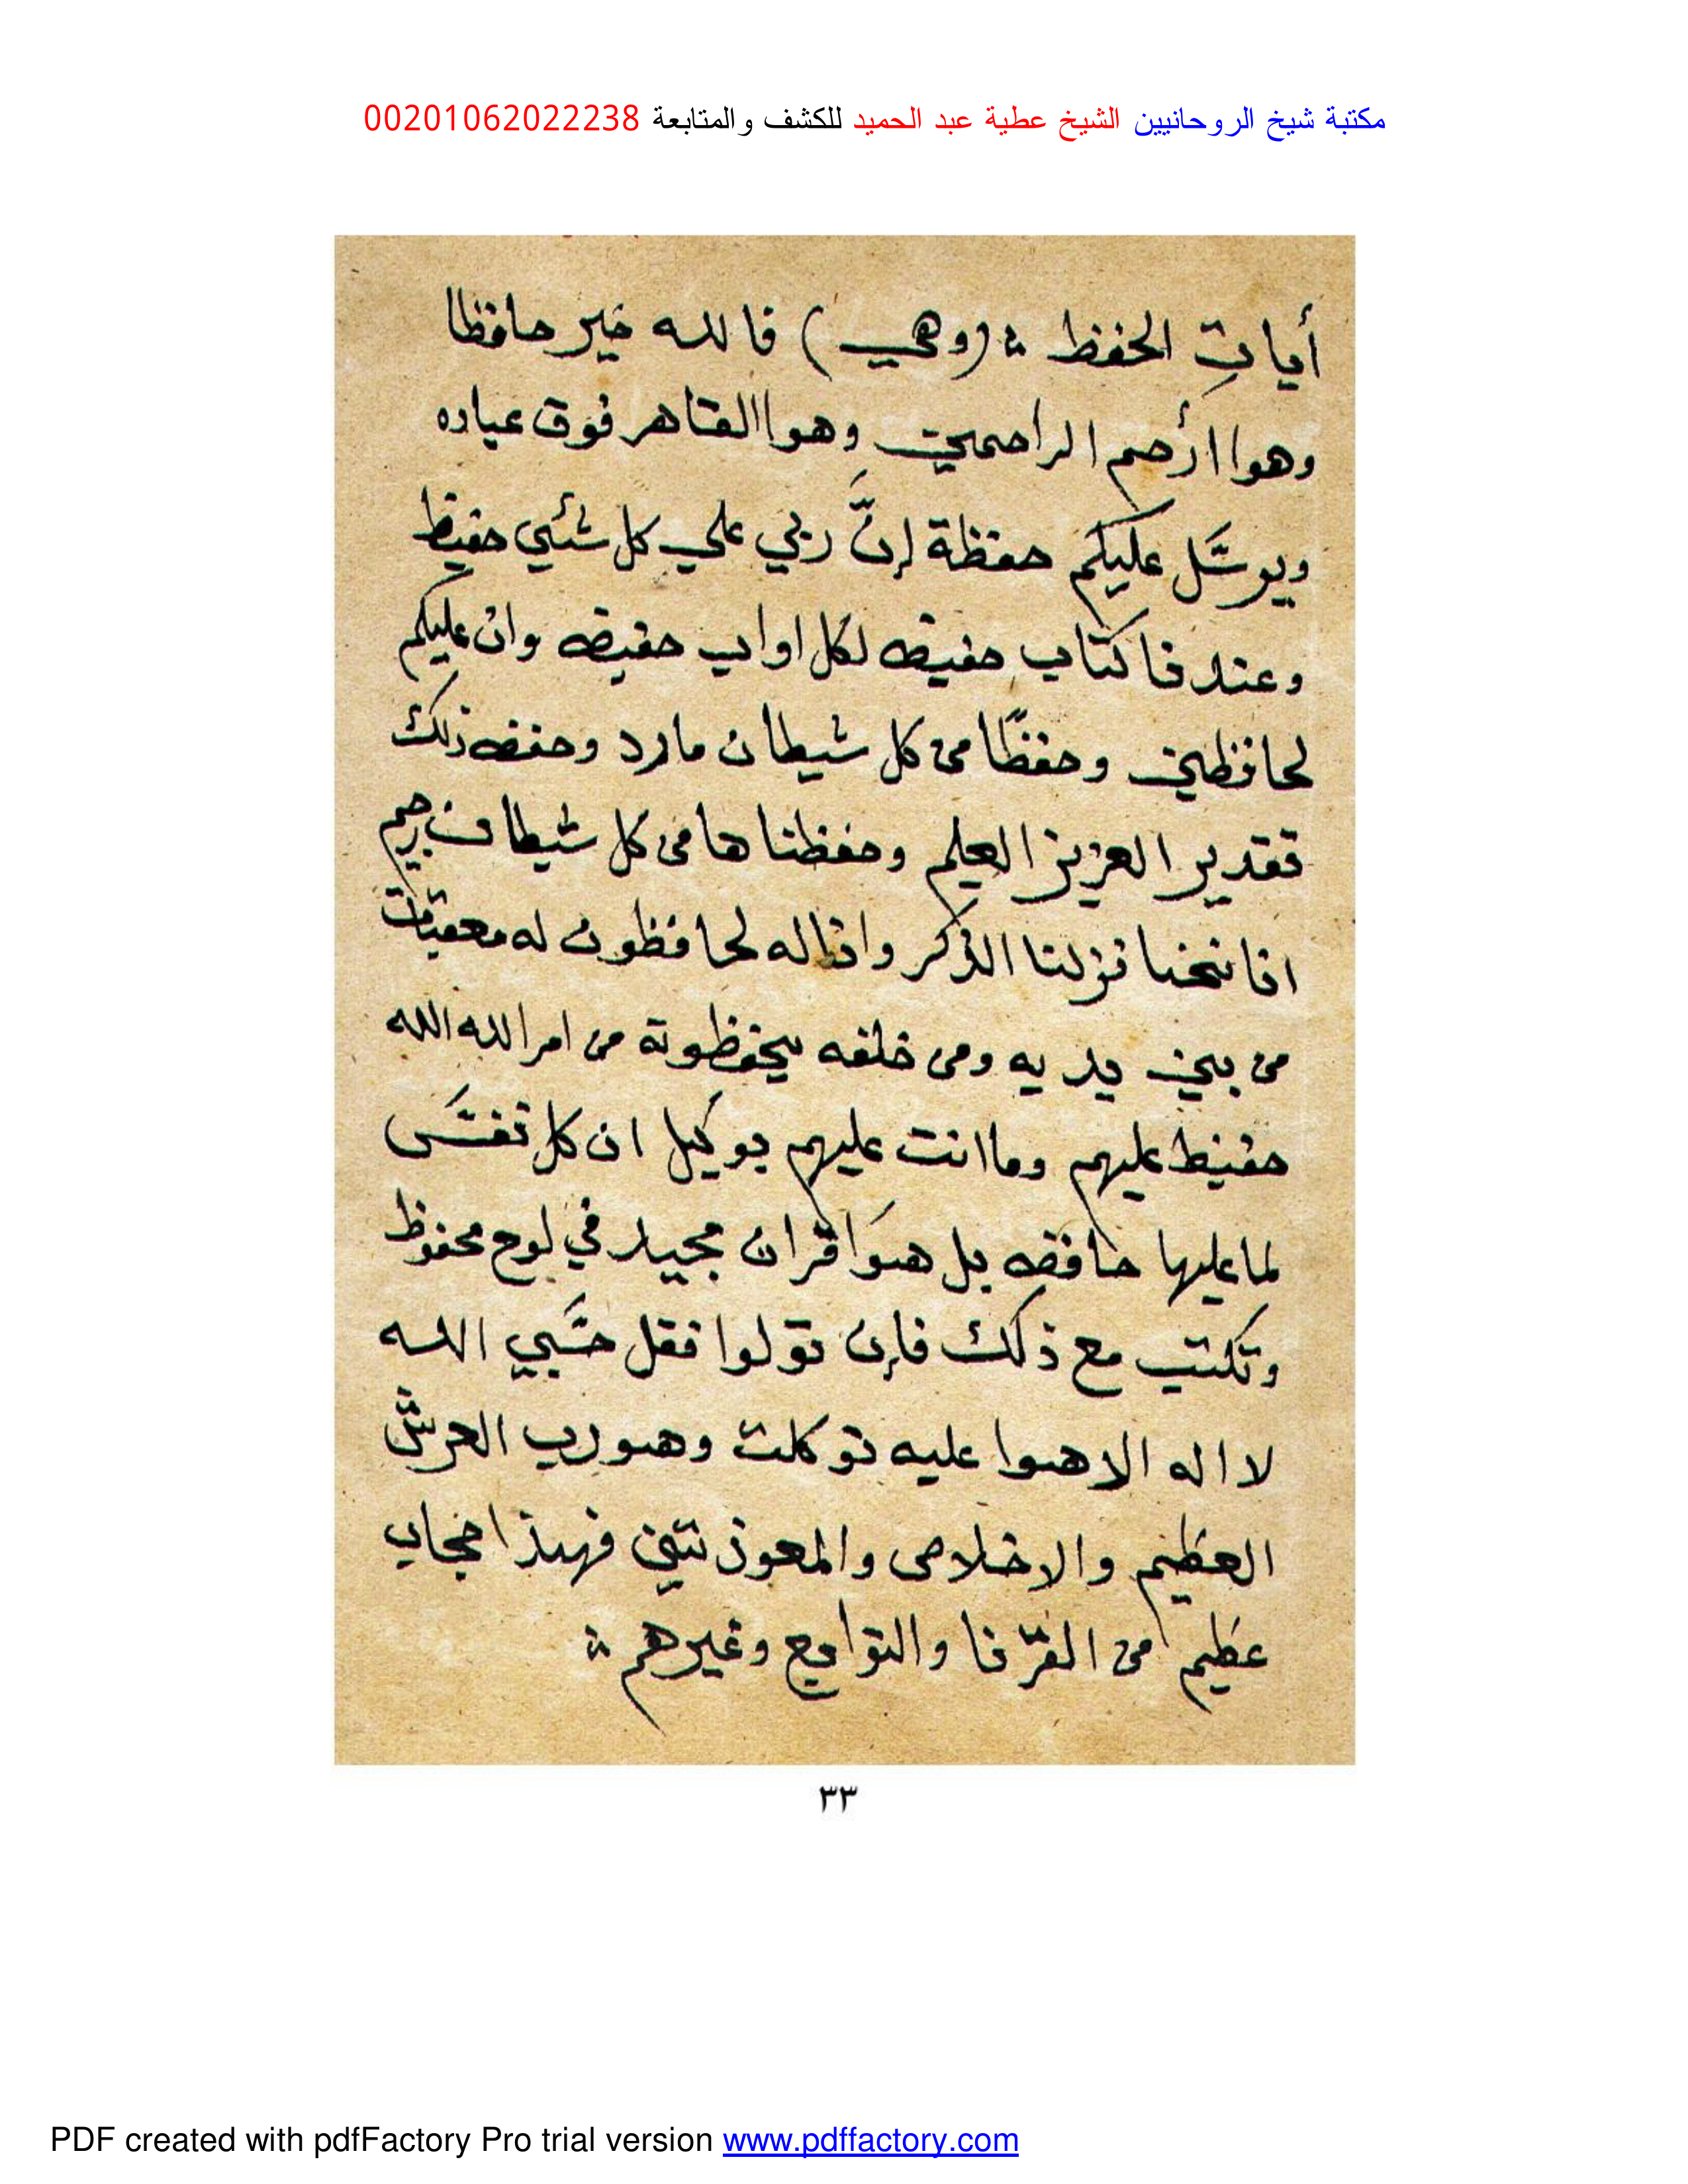 مكتبة شيخ الروحانيين الشيخ عطية عبد الحميد للكشف والمتابعة 00201062022238
أيات الحفظ ؞ (وهي) فالله خير حافظا
وهوا أرحم الراحمين وهوا القاهر فوق عباده
ويوسَّل عليكم حفظة إنَّ ربي علي كل شئي حفيظ
وعندنا كتاب حفيظه لكل اواب حفيظه وان عليكم
لحافظين وحفظًا من كل شيطان مارد وحفظه ذلك
تقدير العزيز العليم وحفظنا هامن كل شيطان رجيم
انا نحنا نزلنا الذكر وانا له لحافظون له معقبات
من بين يديه ومن خلفه يحفظونة من امر الله الله
حفيظ عليهم وما انت عليهم بوكيل ان كل نفسَ
لما عليها حافظه بل هوَا قران مجيد في لوح محفوظ
وتكتب مع ذلك فإن تولوا فقل حسَبي الله
لا اله الا هوا عليه توكلت وهو رب العرش
العظيم والاخلاص والمعوذتين فهذا حجاب
عظيم من القرنا والتوابع وغيرهم ؞
٣٣
PDF created with pdfFactory Pro trial version www.pdffactory.com